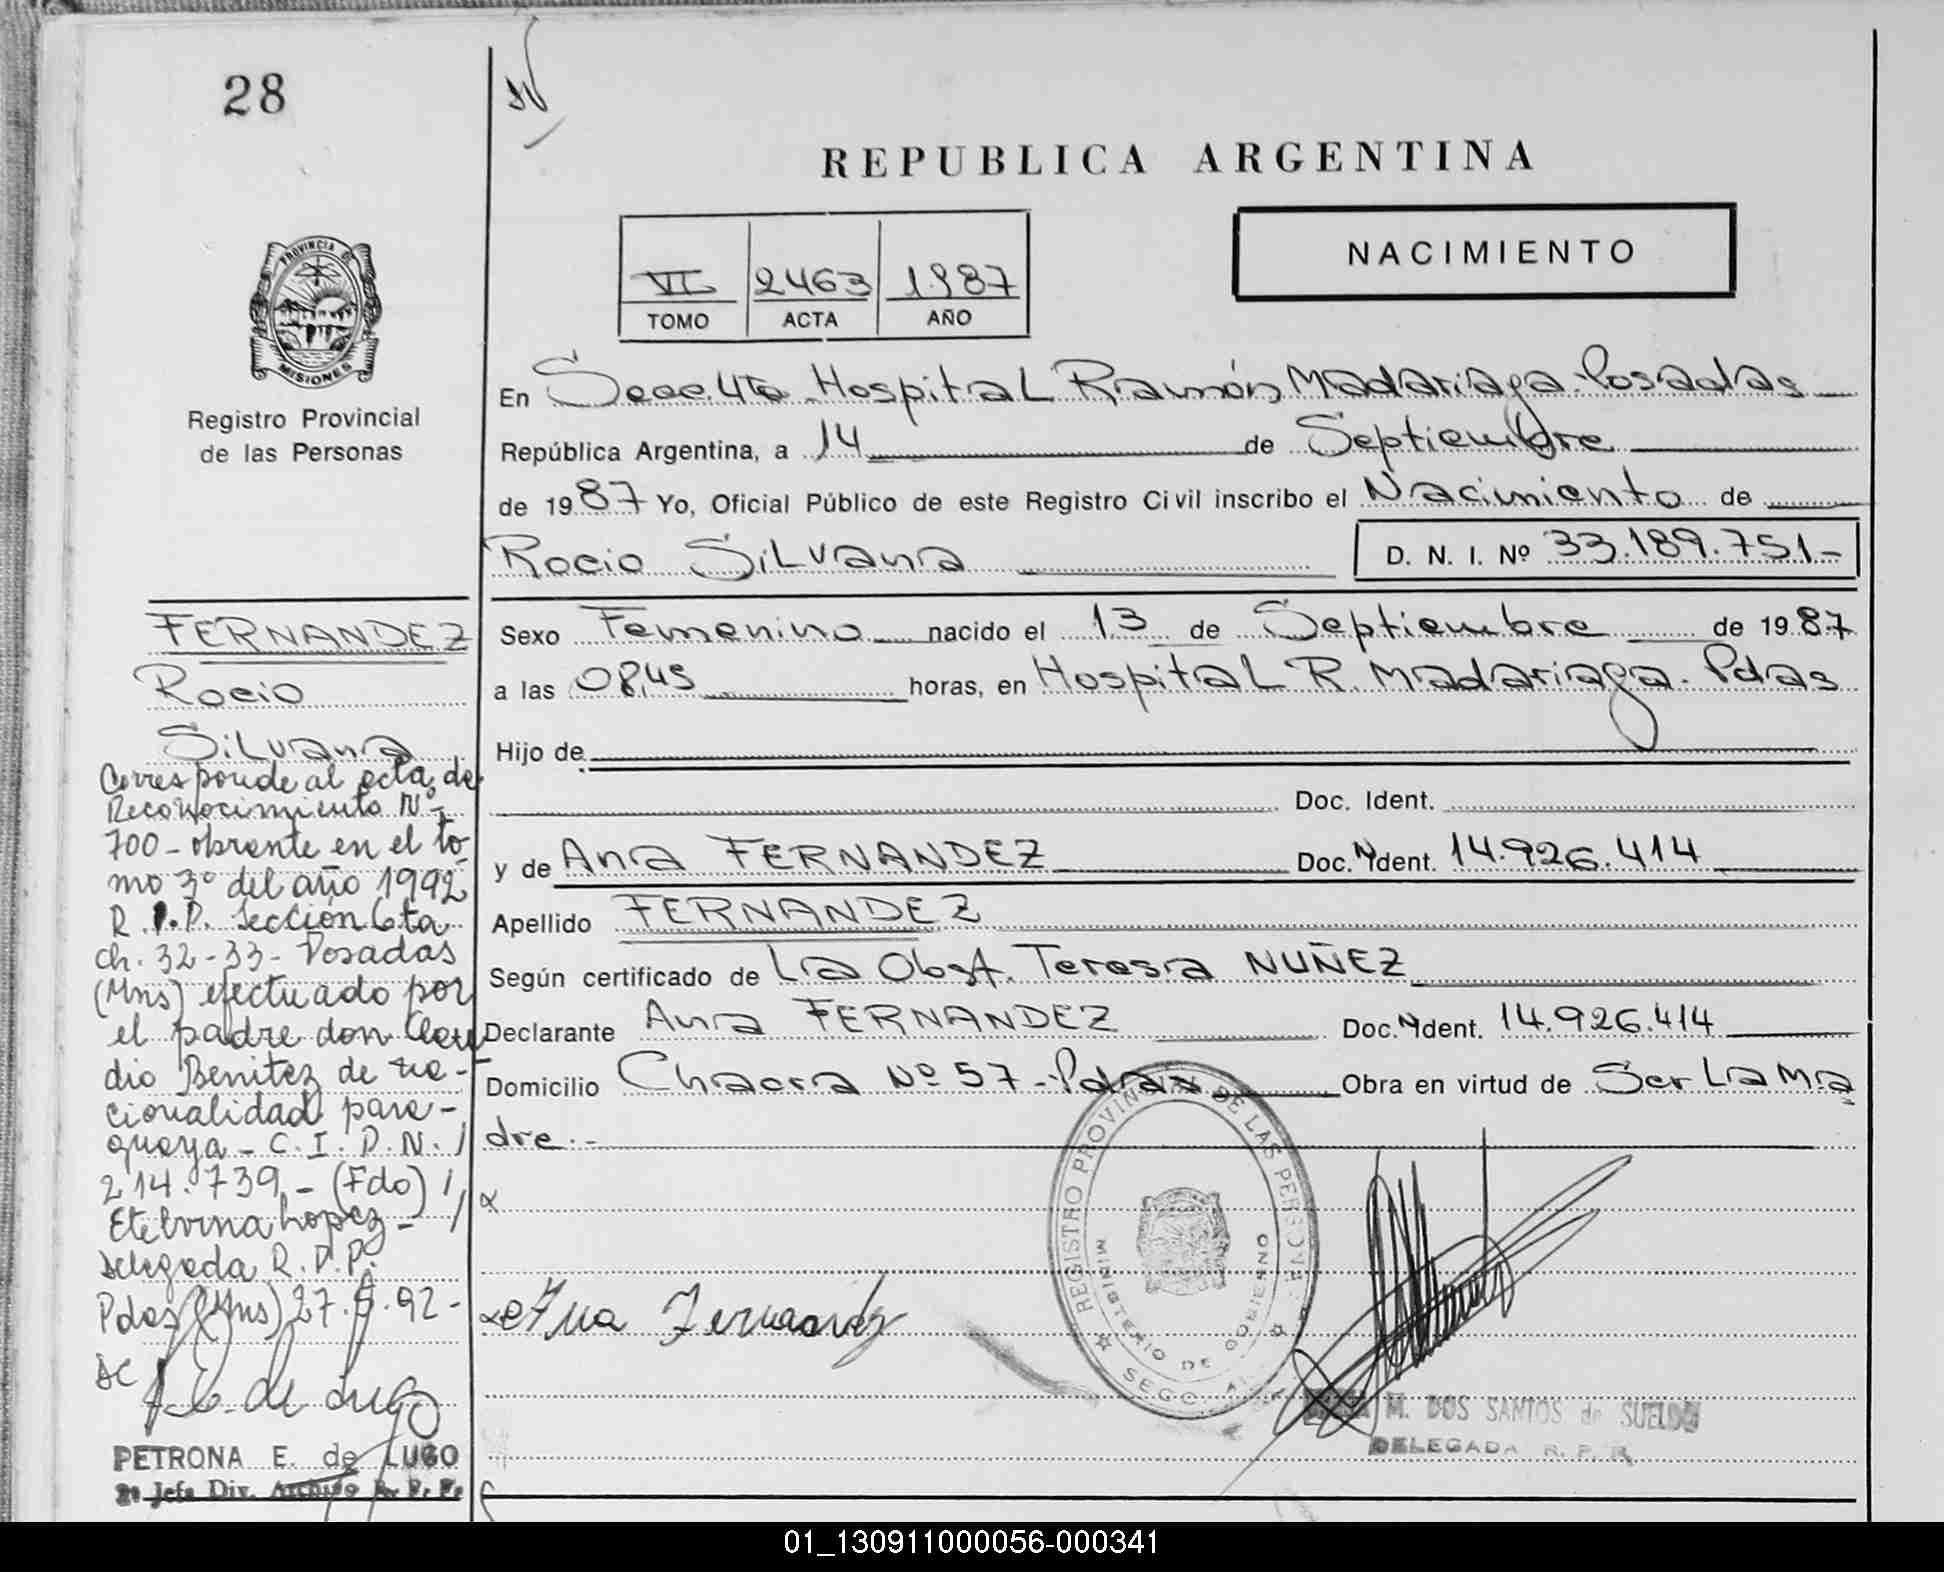 28
REPUBLICA ARGENTINA
NACIMIENTO
VI 2463 1987
TOMO ACTA AÑO
PROVINCIA DE
MISIONES
Registro Provincial
de las Personas
En Secc. 4ta Hospital Ramón Madariaga - Posadas
República Argentina, a 14 de Septiembre
de 1987 Yo, Oficial Público de este Registro Civil inscribo el Nacimiento de
Rocio Silvana D. N. I. Nº 33.189.751-
Sexo Femenino nacido el 13 de Septiembre de 1987
a las 08,45 horas, en Hospital R. Madariaga - Pdas
Hijo de
Doc. Ident.
y de Ana FERNANDEZ Doc. Ident. 14.926.414
Apellido FERNANDEZ
Según certificado de La Obst. Teresa NUÑEZ
Declarante Ana FERNANDEZ Doc. Ident. 14.926.414
Domicilio Chacra Nº 57 - Pdas Obra en virtud de Ser La Ma
dre.-
FERNANDEZ
Rocio
Silvana
Corresponde al acta de
Reconocimiento Nº
700 - obrante en el to
mo 3º del año 1992
R.P.P. Sección 6ta
ch. 32-33- Posadas
(Mns) efectuado por
el padre don Clau
dio Benitez de na-
cionalidad para-
guaya - C.I.P.N.
214.739.- (Fdo)
Etelvina Lopez -
Delegada R.P.P.
Pdas (Mns) 27. .92-
Ana Fernandez
REGISTRO PROVINCIAL DE LAS PERSONAS
MINISTERIO DE GOBIERNO
M. DOS SANTOS de SUELDO
DELEGADA R. P. P.
P. E. de Lugo
PETRONA E. de LUGO
2º Jefe Div. Archivo R. P. P.
01_130911000056-000341